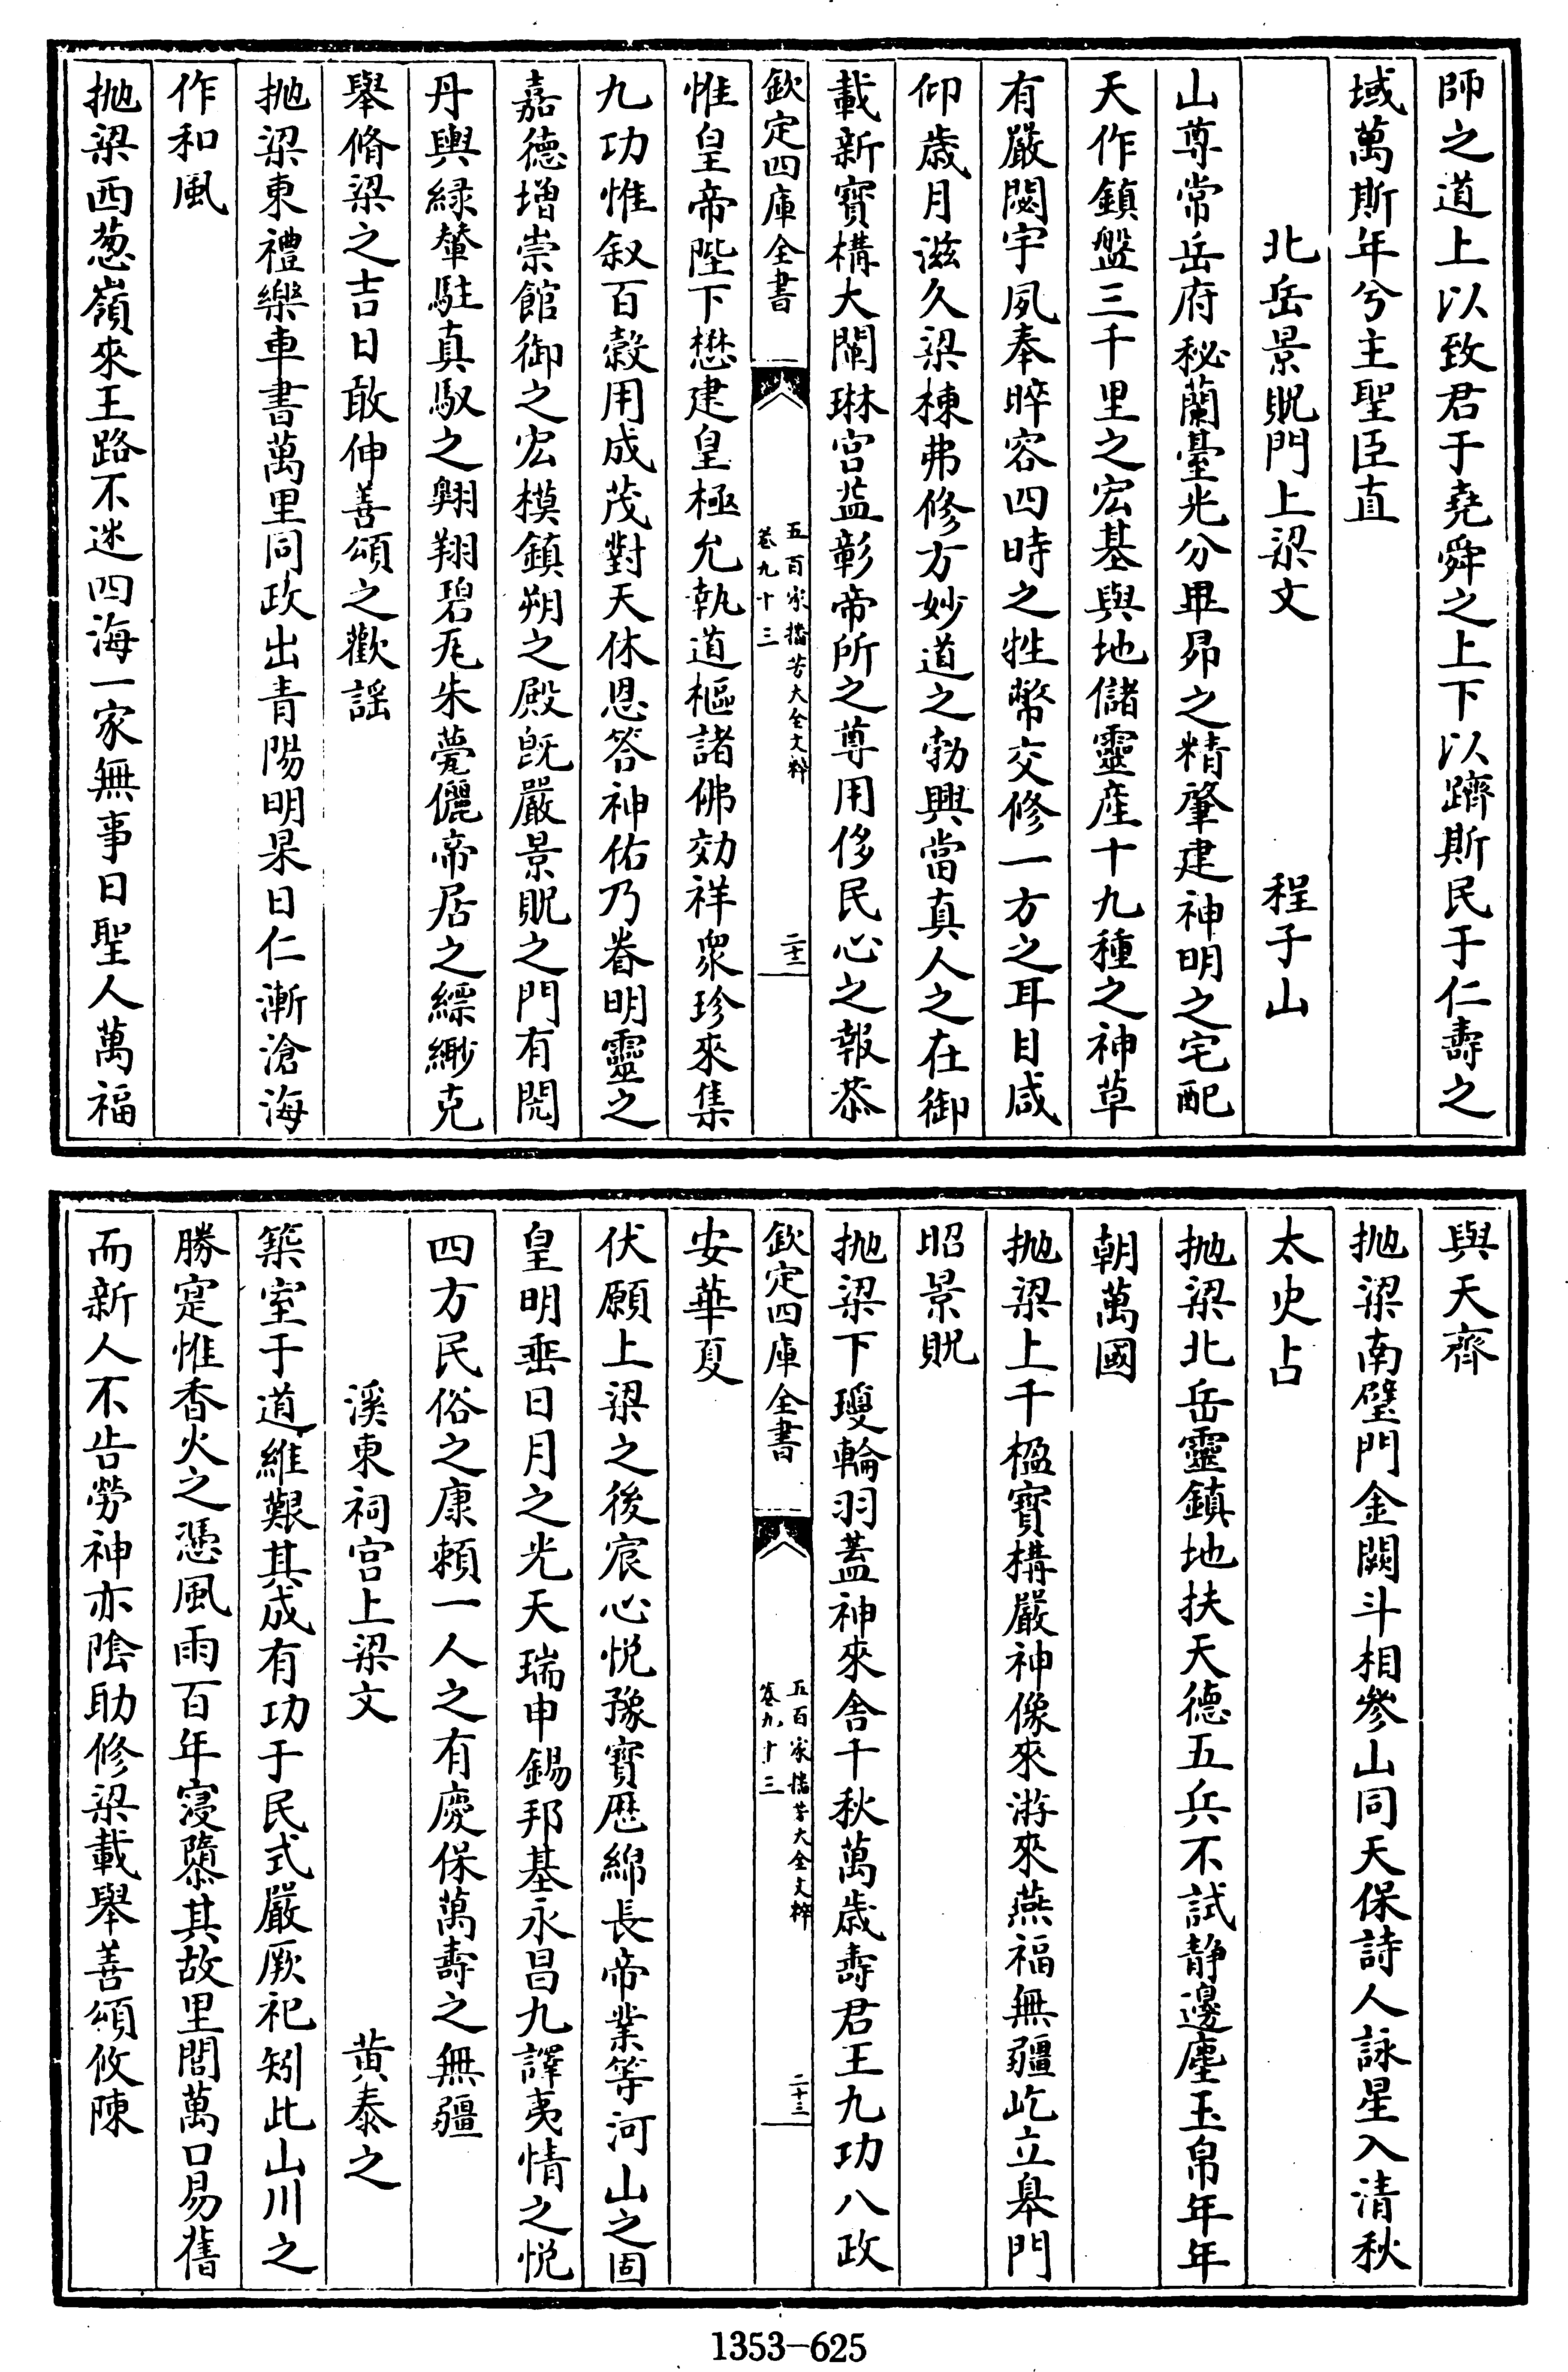 師之道上以致君于堯舜之上下以躋斯民于仁壽之
域萬斯年兮主聖臣直
北岳景貺門上梁文 程子山
山尊常岳府秘蘭臺光分畢昴之精肇建神明之宅配
天作鎮盤三千里之宏基與地儲靈産十九種之神草
有嚴閟宇夙奉睟容四時之牲幣交修一方之耳目咸
仰歲月滋久梁棟弗修方妙道之勃興當真人之在御
載新寳構大闡琳宫益彰帝所之尊用侈民心之報恭
欽定四庫全書
五百家播芳大全文粹
卷九十三
二十二
惟皇帝陛下懋建皇極允執道樞諸佛効祥衆珍來集
九功惟叙百穀用成茂對天休恩答神佑乃眷明靈之
嘉德増崇館御之宏模鎮朔之殿旣嚴景貺之門有閌
丹輿緑輦駐真馭之翱翔碧瓦朱甍儷帝居之縹緲克
舉脩梁之吉日敢伸善頌之歡謡
抛梁東禮樂車書萬里同政出青陽明杲日仁漸滄海
作和風
抛梁西葱嶺來王路不迷四海一家無事日聖人萬福
與天齊
抛梁南璧門金闕斗相參山同天保詩人詠星入清秋
太史占
抛梁北岳靈鎮地扶天德五兵不試静邊塵玉帛年年
朝萬國
抛梁上千楹寳構嚴神像來游來燕福無疆屹立皋門
昭景貺
抛梁下瓊輪羽蓋神來舍千秋萬歲壽君王九功八政
欽定四庫全書
五百家播芳大全文粹
卷九十三
二十三
安華夏
伏願上梁之後宸心悦豫寳厯綿長帝業等河山之固
皇明垂日月之光天瑞申錫邦基永昌九譯夷情之悦
四方民俗之康頼一人之有慶保萬壽之無疆
溪東祠宫上梁文 黄泰之
築室于道維艱其成有功于民式嚴厥祀矧此山川之
勝寔惟香火之憑風雨百年寖隳其故里閭萬口易舊
而新人不告勞神亦隂助修梁載舉善頌攸陳
1353-625